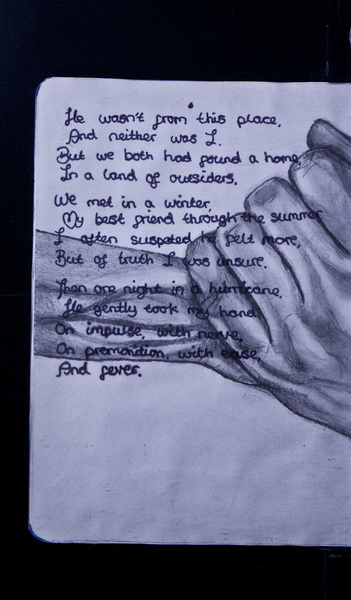 He wasn't from this place,
And neither was I.
But we both had found a home,
In a land of outsiders.
We met in a winter,
My best friend through the summer
I often suspected he felt more,
But of truth I was unsure.
Then one night in a hurricane,
He gently took my hand.
On impulse, with nerve,
On premonition, with ease,
And fever.